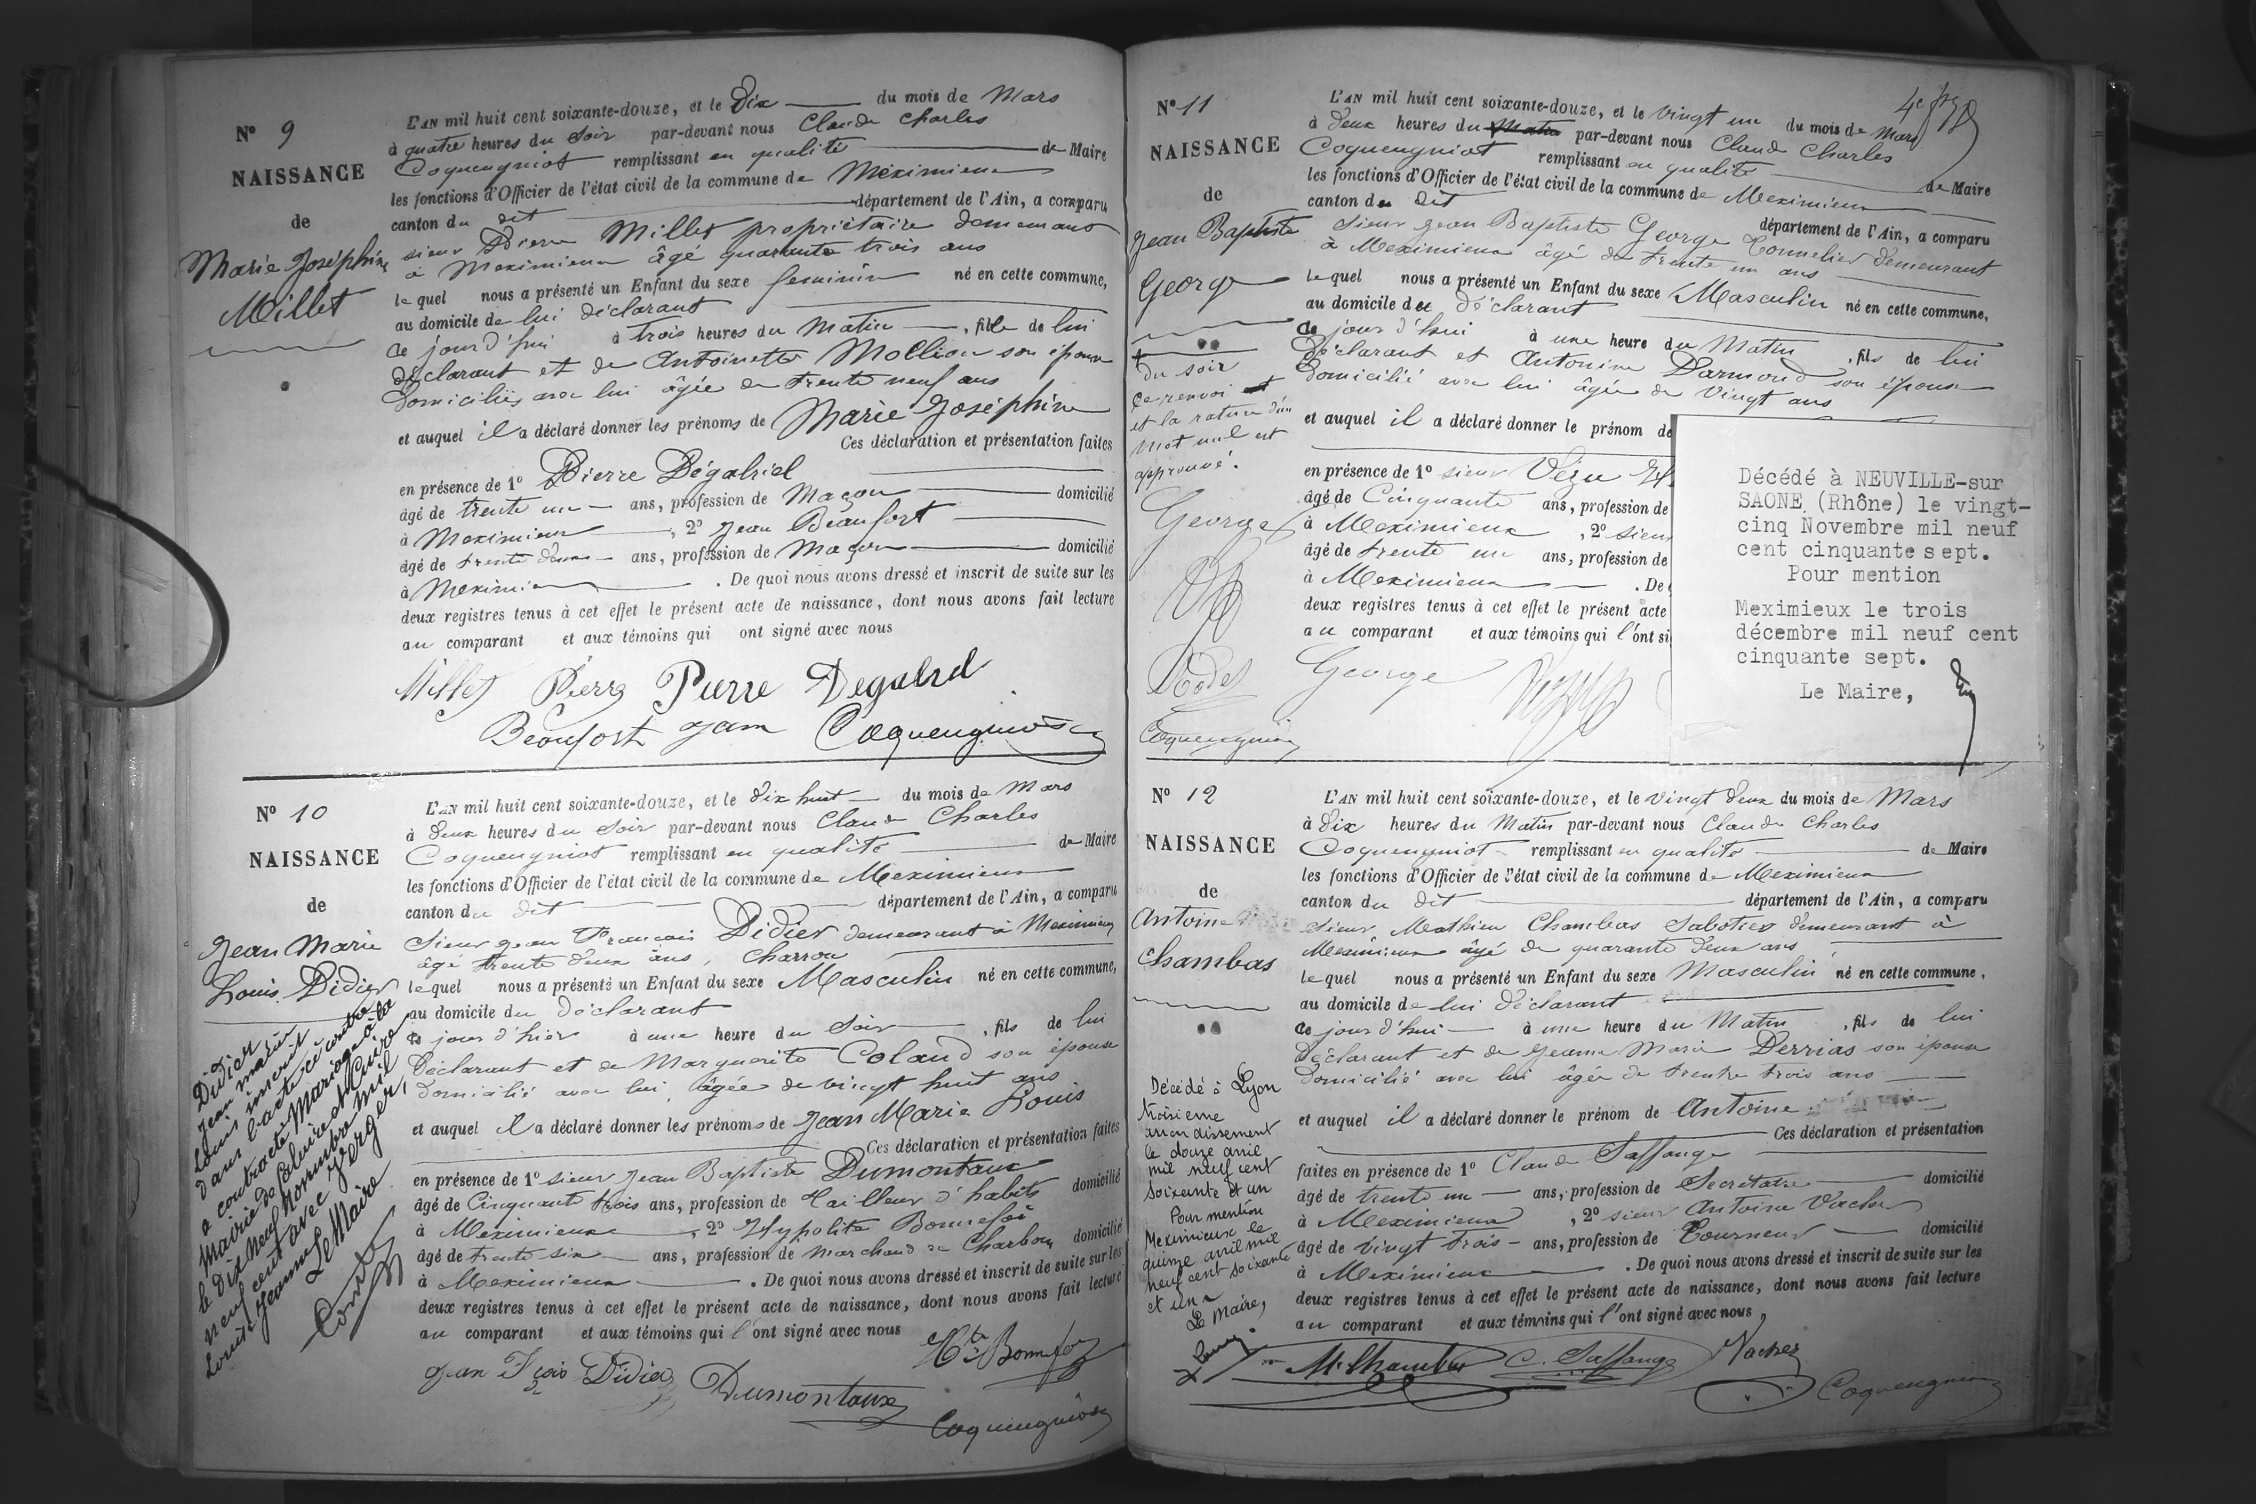 N° 9
NAISSANCE
de
Marie Joséphine
Millet
L'AN mil huit cent soixante-douze, et le Dix du mois de Mars
à quatre heures du Soir par-devant nous Claude Charles
Coquengniot remplissant en qualité de Maire
les fonctions d'Officier de l'état civil de la commune de Meximieux
canton du dit département de l'Ain, a comparu
sieur Pierre Millet propriétaire demeurant
à Meximieux âgé quarante trois ans
lequel nous a présenté un Enfant du sexe feminin né en cette commune,
au domicile de lui déclarant
ce jourd'hui à trois heures du Matin, fille de lui
déclarant et de Antoinette Mollion son épouse
domiciliés avec lui âgée de trente neuf ans
et auquel il a déclaré donner les prénoms de Marie Joséphine
Ces déclaration et présentation faites
en présence de 1° Pierre Dégabriel
âgé de trente un ans, profession de Maçon domicilié
à Meximieux, 2° Jean Beaufort
âgé de trente deux ans, profession de Maçon domicilié
à Meximieux. De quoi nous avons dressé et inscrit de suite sur les
deux registres tenus à cet effet le présent acte de naissance, dont nous avons fait lecture
au comparant et aux témoins qui ont signé avec nous
Millet Pierre Pierre Degabriel
Beaufort Jean Coquengniot
N° 10
NAISSANCE
de
Jean Marie
Louis Didier
Didier
Jean Marie
Louis inscrit
dans l'acte ci contre
a contracté Mariage à la
Mairie de Caluire et Cuire
le Dix Neuf Novembre mil
neuf cent avec Verger,
Louise Jeanne
Le Maire
L'AN mil huit cent soixante-douze, et le dix huit du mois de Mars
à deux heures du Soir par-devant nous Claude Charles
Coquengniot remplissant en qualité de Maire
les fonctions d'Officier de l'état civil de la commune de Meximieux
canton du dit département de l'Ain, a comparu
Sieur Jean François Didier demeurant à Meximieux
âgé trente deux ans, Charron
lequel nous a présenté un Enfant du sexe Masculin né en cette commune,
au domicile du déclarant
ce jour d'hier à une heure du Soir, fils de lui
déclarant et de Marguerite Coland son épouse
domicilié avec lui, âgée de vingt huit ans
et auquel il a déclaré donner les prénoms de Jean Marie Louis
Ces déclaration et présentation faites
en présence de 1° sieur Jean Baptiste Dumontaux
âgé de Cinquante trois ans, profession de Tailleur d'habits domicilié
à Meximieux, 2° Hypolite Bonnefoi
âgé de trente six ans, profession de Marchand de Charbon domicilié
à Meximieux. De quoi nous avons dressé et inscrit de suite sur les
deux registres tenus à cet effet le présent acte de naissance, dont nous avons fait lecture
au comparant et aux témoins qui l'ont signé avec nous
Jean Fçois Didier Dumontaux Hte Bonnefoy
Coquengniot
N° 11
NAISSANCE
de
Jean Baptiste
George
+
du soir
Ce renvoi
et la rature d'un
mot nul est
approuvé.
George
Rodet
Coquengniot
L'AN mil huit cent soixante-douze, et le vingt un du mois de Mars
à deux heures du Matin par-devant nous Claude Charles
Coquengniot remplissant en qualité de Maire
les fonctions d'Officier de l'état civil de la commune de Meximieux
canton du dit département de l'Ain, a comparu
Sieur Jean Baptiste George Tonnelier demeurant
à Meximieux âgé de trente un ans
lequel nous a présenté un Enfant du sexe Masculin né en cette commune,
au domicile du déclarant
ce jour d'hui à une heure du Matin, fils de lui
déclarant et Antonine Darmond son épouse
domicilié avec lui âgée de Vingt ans
et auquel il a déclaré donner le prénom de
en présence de 1° sieur
âgé de Cinquante ans, profession de
à Meximieux, 2° sieur
âgé de trente un ans, profession de
à Meximieux. De
deux registres tenus à cet effet le présent acte
au comparant et aux témoins qui l'ont si
George
Décédé à NEUVILLE-sur
SAONE (Rhône) le vingt-
cinq Novembre mil neuf
cent cinquante sept.
Pour mention
Meximieux le trois
décembre mil neuf cent
cinquante sept.
Le Maire,
N° 12
NAISSANCE
de
Antoine
Chambas
Décédé à Lyon
troisieme
arrondissement
le douze avril
mil neuf cent
soixante et un
Pour mention
Meximieux le
quinze avril mil
neuf cent soixante
et un
Le Maire,
L'AN mil huit cent soixante-douze, et le vingt deux du mois de Mars
à dix heures du Matin par-devant nous Claude Charles
Coquengniot remplissant en qualité de Maire
les fonctions d'Officier de l'état civil de la commune de Meximieux
canton du dit département de l'Ain, a comparu
sieur Mathieu Chambas Sabotier demeurant à
Meximieux âgé de quarante deux ans
lequel nous a présenté un Enfant du sexe Masculin né en cette commune,
au domicile de lui déclarant
ce jour d'hui à une heure du Matin, fils de lui
déclarant et de Jeanne Marie Derrias son épouse
domicilié avec lui âgée de trente trois ans
et auquel il a déclaré donner le prénom de Antoine
Ces déclaration et présentation
faites en présence de 1° Claude Saffange
âgé de trente un ans, profession de Secrétaire domicilié
à Meximieux, 2° sieur Antoine Vacher
âgé de vingt trois ans, profession de Tourneur domicilié
à Meximieux. De quoi nous avons dressé et inscrit de suite sur les
deux registres tenus à cet effet le présent acte de naissance, dont nous avons fait lecture
au comparant et aux témoins qui l'ont signé avec nous
M. Chambas C. Saffange Vacher
Coquengniot